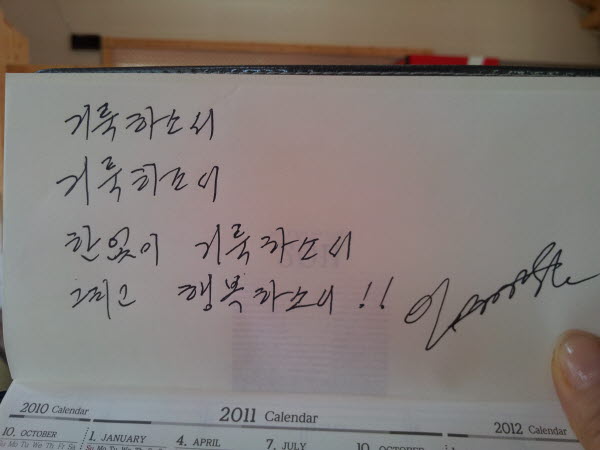 거룩하소서
거룩하소서
한없이 거룩하소서
그리고 행복하소서!!
2010 Calendar
2011 Calendar
2012 Calendar
10. OCTOBER
1. JANUARY
4. APRIL
7. JULY
10. OCTOBER
Su Mo Tu We Th Fr Sa
Su Mo Tu We Th Fr Sa